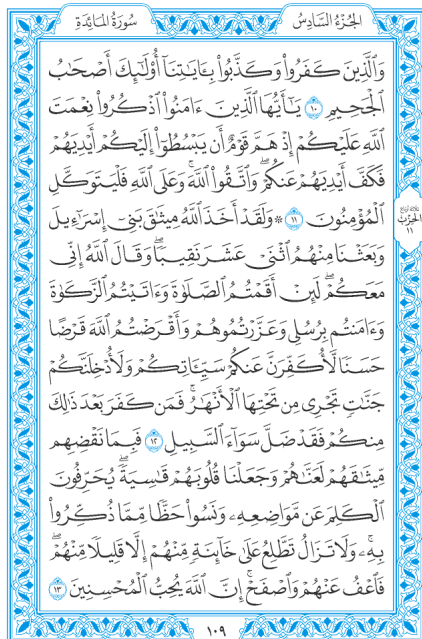 الجُزْءُ السَّادِسُ
سُورَةُ المَائِدَةِ
وَالَّذِينَ كَفَرُوا۟ وَكَذَّبُوا۟ بِـَٔايَـٰتِنَآ أُو۟لَـٰٓئِكَ أَصْحَـٰبُ
ٱلْجَحِيمِ ١٠ يَـٰٓأَيُّهَا ٱلَّذِينَ ءَامَنُوا۟ ٱذْكُرُوا۟ نِعْمَتَ
ٱللَّهِ عَلَيْكُمْ إِذْ هَمَّ قَوْمٌ أَن يَبْسُطُوٓا۟ إِلَيْكُمْ أَيْدِيَهُمْ
فَكَفَّ أَيْدِيَهُمْ عَنكُمْ ۖ وَٱتَّقُوا۟ ٱللَّهَ ۚ وَعَلَى ٱللَّهِ فَلْيَتَوَكَّلِ
ٱلْمُؤْمِنُونَ ١١ ۞ وَلَقَدْ أَخَذَ ٱللَّهُ مِيثَـٰقَ بَنِىٓ إِسْرَٰٓءِيلَ
وَبَعَثْنَا مِنْهُمُ ٱثْنَىْ عَشَرَ نَقِيبًا ۖ وَقَالَ ٱللَّهُ إِنِّى
مَعَكُمْ ۖ لَئِنْ أَقَمْتُمُ ٱلصَّلَوٰةَ وَءَاتَيْتُمُ ٱلزَّكَوٰةَ
وَءَامَنتُم بِرُسُلِى وَعَزَّرْتُمُوهُمْ وَأَقْرَضْتُمُ ٱللَّهَ قَرْضًا
حَسَنًا لَّأُكَفِّرَنَّ عَنكُمْ سَيِّـَٔاتِكُمْ وَلَأُدْخِلَنَّكُمْ
جَنَّـٰتٍ تَجْرِى مِن تَحْتِهَا ٱلْأَنْهَـٰرُ ۚ فَمَن كَفَرَ بَعْدَ ذَٰلِكَ
مِنكُمْ فَقَدْ ضَلَّ سَوَآءَ ٱلسَّبِيلِ ١٢ فَبِمَا نَقْضِهِم
مِّيثَـٰقَهُمْ لَعَنَّـٰهُمْ وَجَعَلْنَا قُلُوبَهُمْ قَـٰسِيَةً ۖ يُحَرِّفُونَ
ٱلْكَلِمَ عَن مَّوَاضِعِهِۦ ۙ وَنَسُوا۟ حَظًّا مِّمَّا ذُكِّرُوا۟
بِهِۦ ۚ وَلَا تَزَالُ تَطَّلِعُ عَلَىٰ خَآئِنَةٍ مِّنْهُمْ إِلَّا قَلِيلًا مِّنْهُمْ ۖ
فَٱعْفُ عَنْهُمْ وَٱصْفَحْ ۚ إِنَّ ٱللَّهَ يُحِبُّ ٱلْمُحْسِنِينَ ١٣
الحِزْب
١١
١٠٩